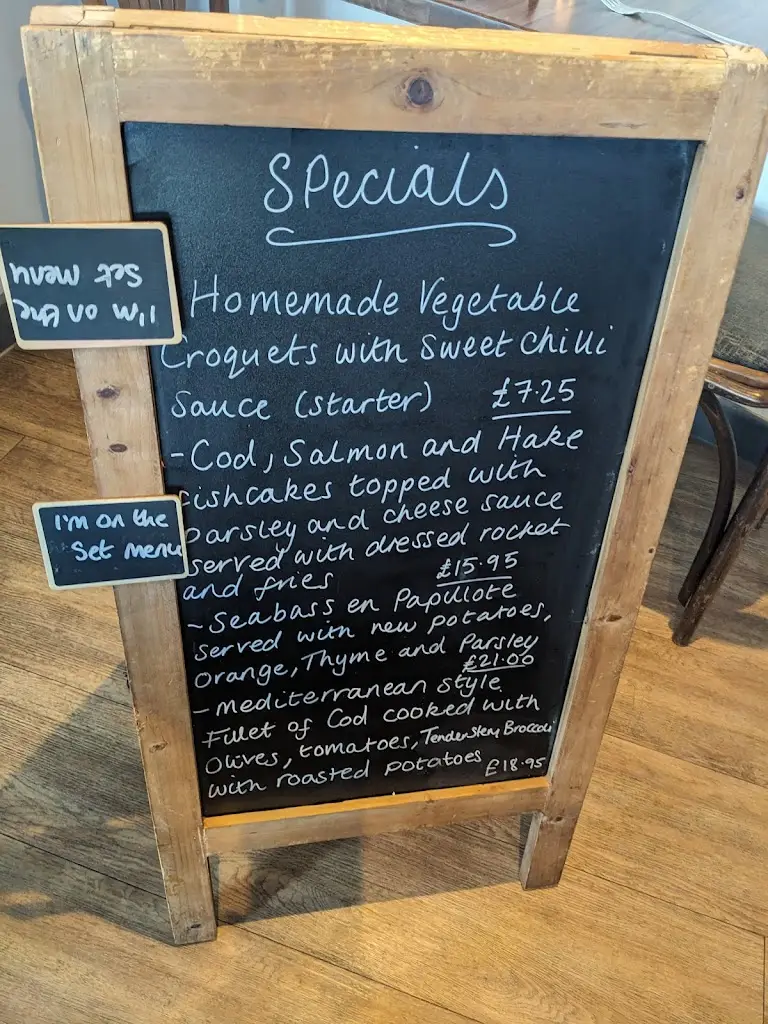 Specials
I'm on the
Set menu
Homemade Vegetable
Croquets with sweet chilli
Sauce (starter) £7.25
-Cod, Salmon and Hake
fishcakes topped with
parsley and cheese sauce
served with dressed rocket
and fries £15.95
I'm on the
Set menu
-Seabass en Papillote
served with new potatoes,
orange, Thyme and Parsley
£21.00
-mediterranean style
Fillet of Cod cooked with
Olives, tomatoes, Tenderstem Broccoli
with roasted potatoes £18.95